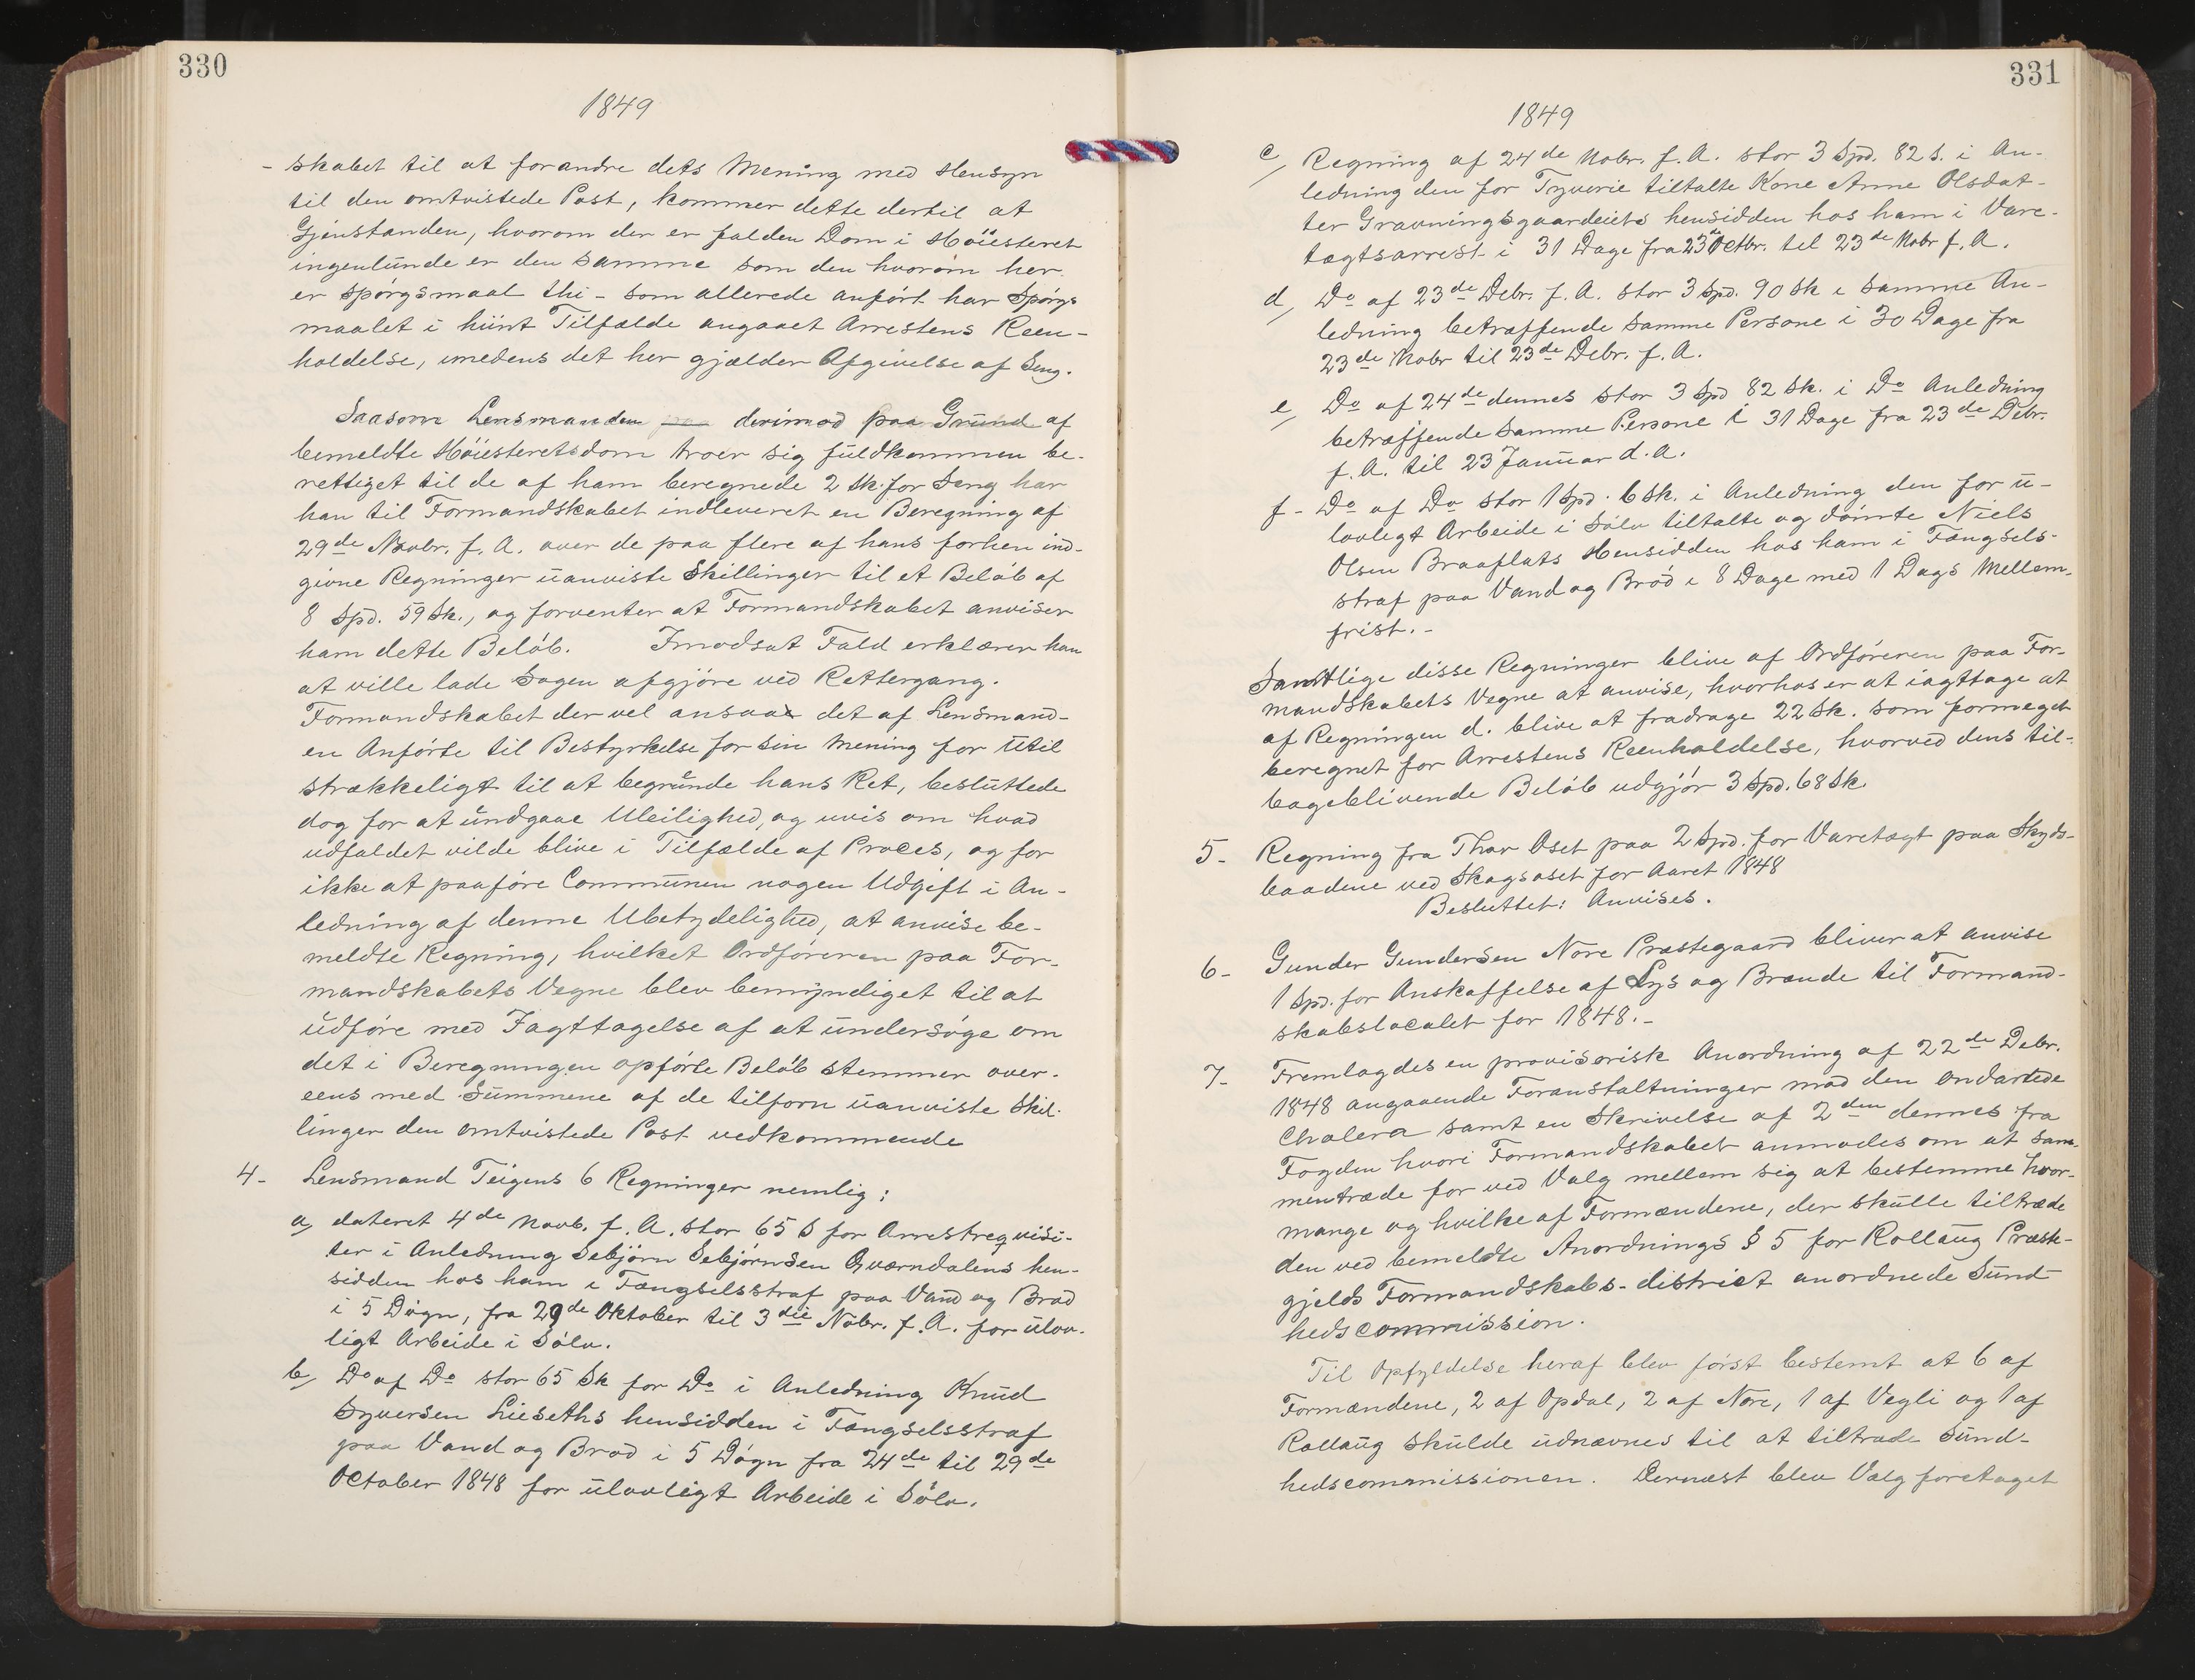 330
1849
- skabet til at forandre dets Mening med Hensyn
til den omtvistede Post, kommer dette dertil at
Gjenstanden, hvorom der er falden Dom i Höiesteret
ingenlunde er den samme som den hvorom her
er Spörgsmaal thi - som allerede anfört har Spörgs
maalet i hiint Tilfælde angaaet Arrestens Reen-
holdelse, imedens det her gjælder Afgivelse af Seng.
Saasom Lensmanden derimod paa Grund af
bemeldte Höiesteretsdom troer sig fuldkommen be-
rettiget til de af ham beregnede 2 Sk. for Seng har
han til Formandskabet indleveret en Beregning af
29de Novbr. f. A. over de paa flere af hans forhen ind-
givne Regninger uanviste Skillinger til et Belöb af
8 Spd. 59 Sk., og forventer at Formandskabet anviser
ham dette Belöb. Imodsat Fald erklærer han
at ville lade Sagen afgjöre ved Rettergang.
Formandskabet der vel ansaae det af Lensmand-
en Anförte til Bestyrkelse for sin Mening for Util
strækkeligt til at begrunde hans Ret, besluttede
dog for at undgaae Uleilighed, og uvis om hvad
udfaldet vilde blive i Tilfælde af Proces, og for
ikke at paaföre Communen nogen Udgift i An-
ledning af denne Ubetydelighed, at anvise be-
meldte Regning, hvilket Ordföreren paa For-
mandskabets Vegne blev bemyndiget til at
udföre med Iagttagelse af at undersöge om
det i Beregningen opförte Belöb stemmer over-
eens med Summene af de tilforn uanviste Skil-
linger den omtvistede Post vedkommende
4- Lensmand Teigens 6 Regninger nemlig:
a, dateret 4de Novb. f. A. stor 65 S for Arrestreqvisi-
ter i Anledning Sebjörn Sebjörnsen Qværndalens hen-
sidden hos ham i Fængselsstraf paa Vand og Bröd
i 5 Dögn, fra 29de Oktober til 3die Nobr. f. A. for ulov-
ligt Arbeide i Sölv.
b, Do af Do stor 65 Sk for Do i Anledning Knud
Syversen Lieseths hensidden i Fængselsstraf
paa Vand og Bröd i 5 Dögn fra 24de til 29de
October 1848 for ulovligt Arbeide i Sölv.
331
1849
c, Regning af 24de Nobr. f. A. stor 3 Spd. 82 S. i An-
ledning den for Tyverie tiltalte Kone Anne Olsdat-
ter Gravningsgaardeiets hensidden hos ham i Vare-
tægtsarrest i 31 Dage fra 23de Octbr. til 23de Nobr f. A.
d, Do af 23de Debr. f. A. stor 3 Spd. 90 Sk i samme An-
ledning betræffende samme Persone i 30 Dage fra
23de Nobr til 23de Debr. f. A.
e, Do af 24de dennes stor 3 Spd 82 Sk. i Do Anledning
betræffende samme Persone i 31 Dage fra 23de Debr.
f. A. til 23 Januar d. A.
f- Do af Do stor 1 Spd. 6 Sk. i Anledning den for u-
lovligt Arbeide i Sölv tiltalte og dömte Niels
Olsen Braaflats Hensidden hos ham i Fængsels-
straf paa Vand og Bröd i 8 Dage med 1 Dags Mellem-
frist.-
Samtlige disse Regninger blive af Ordföreren paa For-
mandskabets Vegne at anvise, hvorhos er at iagttage at
af Regningen d. blive at fradrage 22 Sk. som formeget
beregnet for Arrestens Reenholdelse, hvorved dens til-
bageblivende Belöb udgjör 3 Spd. 68 Sk.
5- Regning fra Thor Oset paa 2 Spd. for Varetægt paa Skyds-
baadene ved Skagsoset for Aaret 1848
Besluttet: Anvises.
6- Gunder Gundersen Nore Præstegaard bliver at anvise
1 Spd. for Anskaffelse af Lys og Brænde til Formand-
skabslocalet for 1848.-
7- Fremlagdes en provisorisk Anordning af 22de Debr.
1848 angaaende Foranstaltninger mod den ondartede
Cholera samt en Skrivelse af 2den dennes fra
Fogden hvori Formandskabet anmodes om at sam-
mentræde for ved Valg mellem sig at bestemme hvor-
mange og hvilke af Formændene, der skulle tiltræde
den ved bemeldte Anordnings § 5 for Rollaug Præste-
gjelds Formandskabs-district anordnede Sund-
hedscommission.
Til Opfyldelse heraf blev först bestemt at 6 af
Formændene, 2 af Opdal, 2 af Nore, 1 af Vegli og 1 af
Rollaug skulde udnævnes til at tiltræde Sund-
hedscommissionen. Dernæst blev Valg foretaget